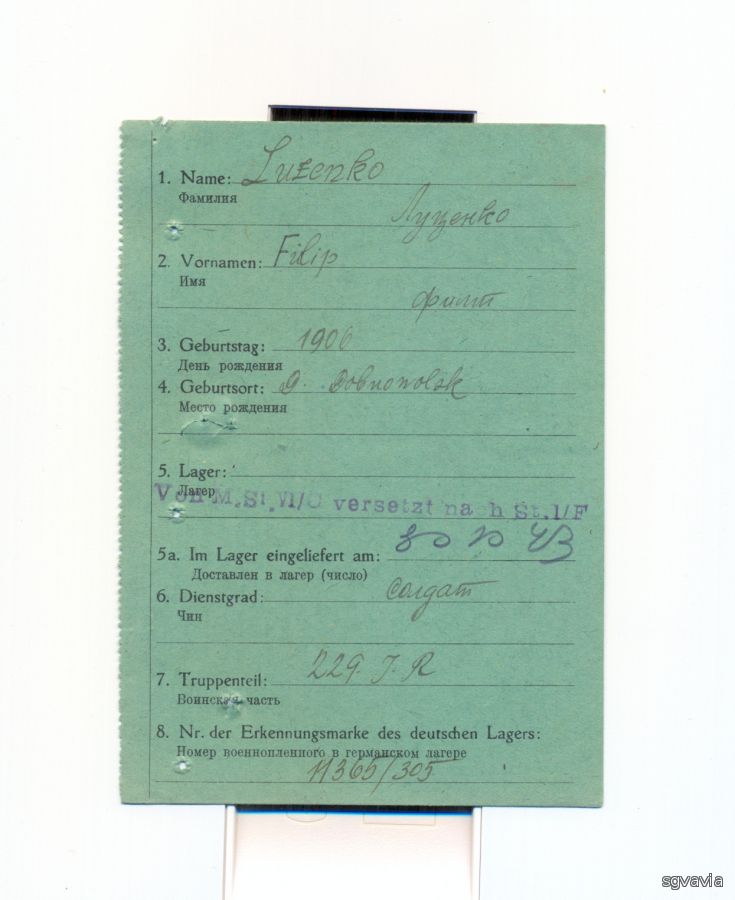 1. Name: Luzenko
Фамилия
Луценко
2. Vornamen: Filip
Имя
Филип
3. Geburtstag: 1906
День рождения
4. Geburtsort: D.
Место рождения
5. Lager:
Лагер
Von M.St.VI/C versetzt nach St.I/F
5a. Im Lager eingeliefert am:
Доставлен в лагер (число)
6. Dienstgrad: солдат
Чин
7. Truppenteil: 229. J. R
Воинская часть
8. Nr. der Erkennungsmarke des deutschen Lagers:
Номер военнопленного в германском лагере
11365/305
sgvavia